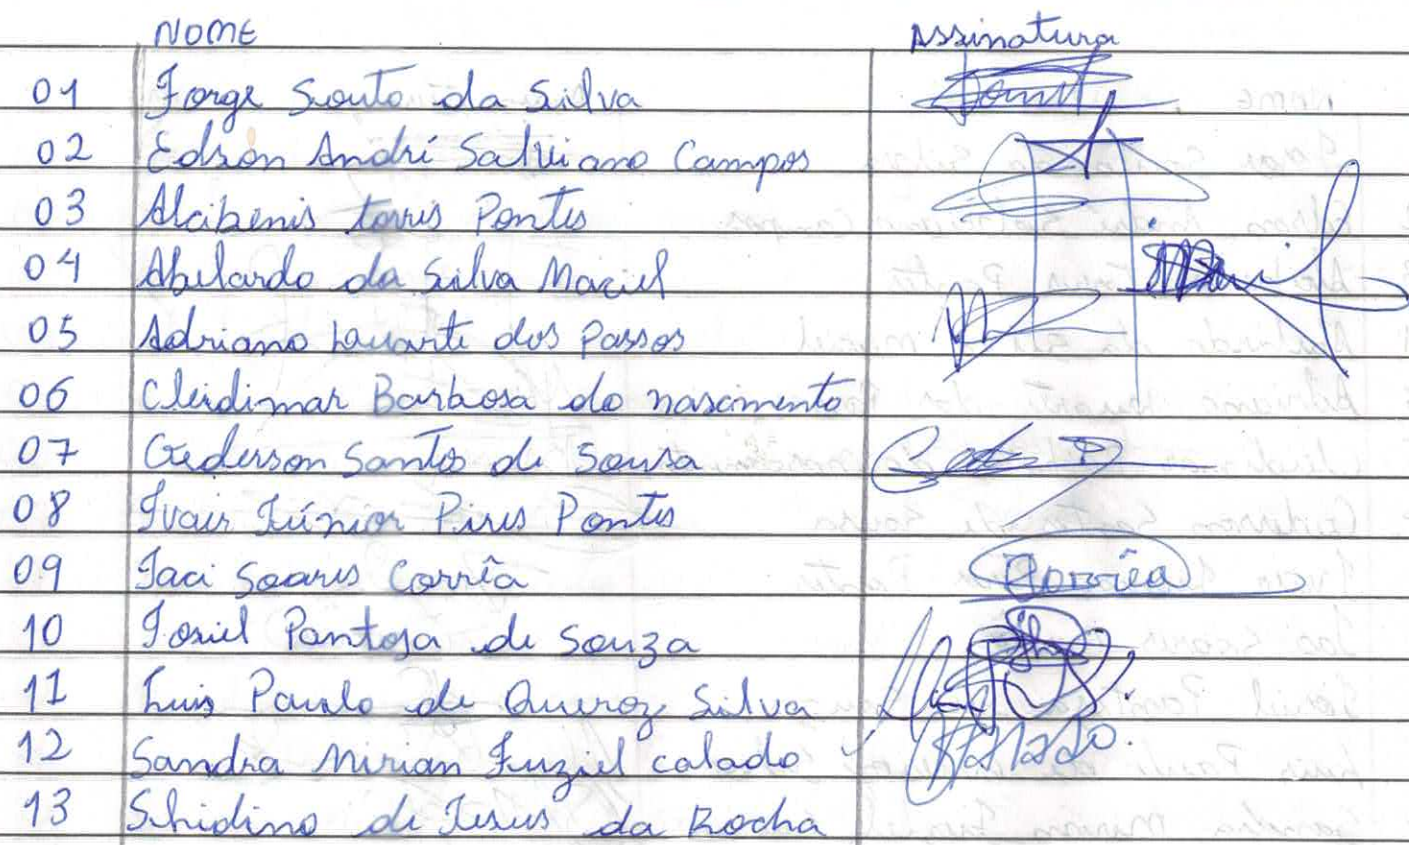 NOME Assinatura
01 Jorge Souto da Silva
02 Edson André Salviano Campos
03 Alcibenis torres Pontes
04 Abelardo da Silva Maciel
05 Adriano Duarte dos Passos
06 Cleidimar Barbosa do nascimento
07 Gederson Santos de Sousa
08 Ivair Júnior Pires Pontes
09 Jaci Soares Corrêa Corrêa
10 Josiel Pantoja de Souza
11 Luis Paulo de Queroz Silva
12 Sandra Mirian Furziel calado
13 Sihidino de Jesus da Rocha